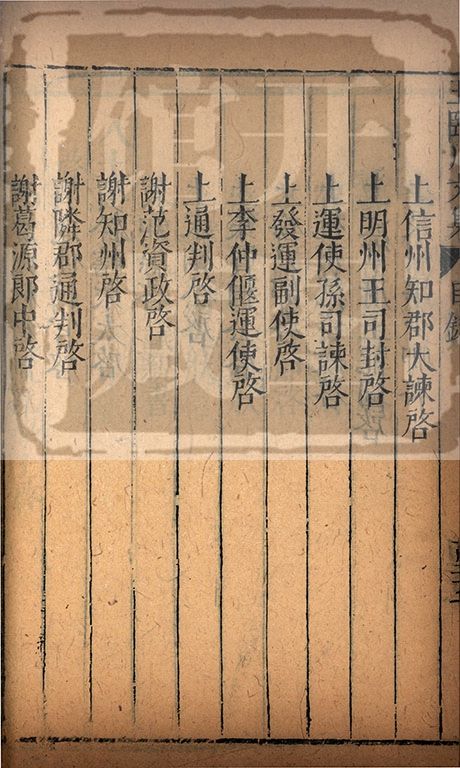 王臨川文集 目錄
上信州知郡大諫啓
上明州王司封啓
上運使孫司諫啓
上發運副使啓
上李仲偃運使啓
上通判啓
謝范資政啓
謝知州啓
謝隣郡通判啓
謝葛源郎中啓